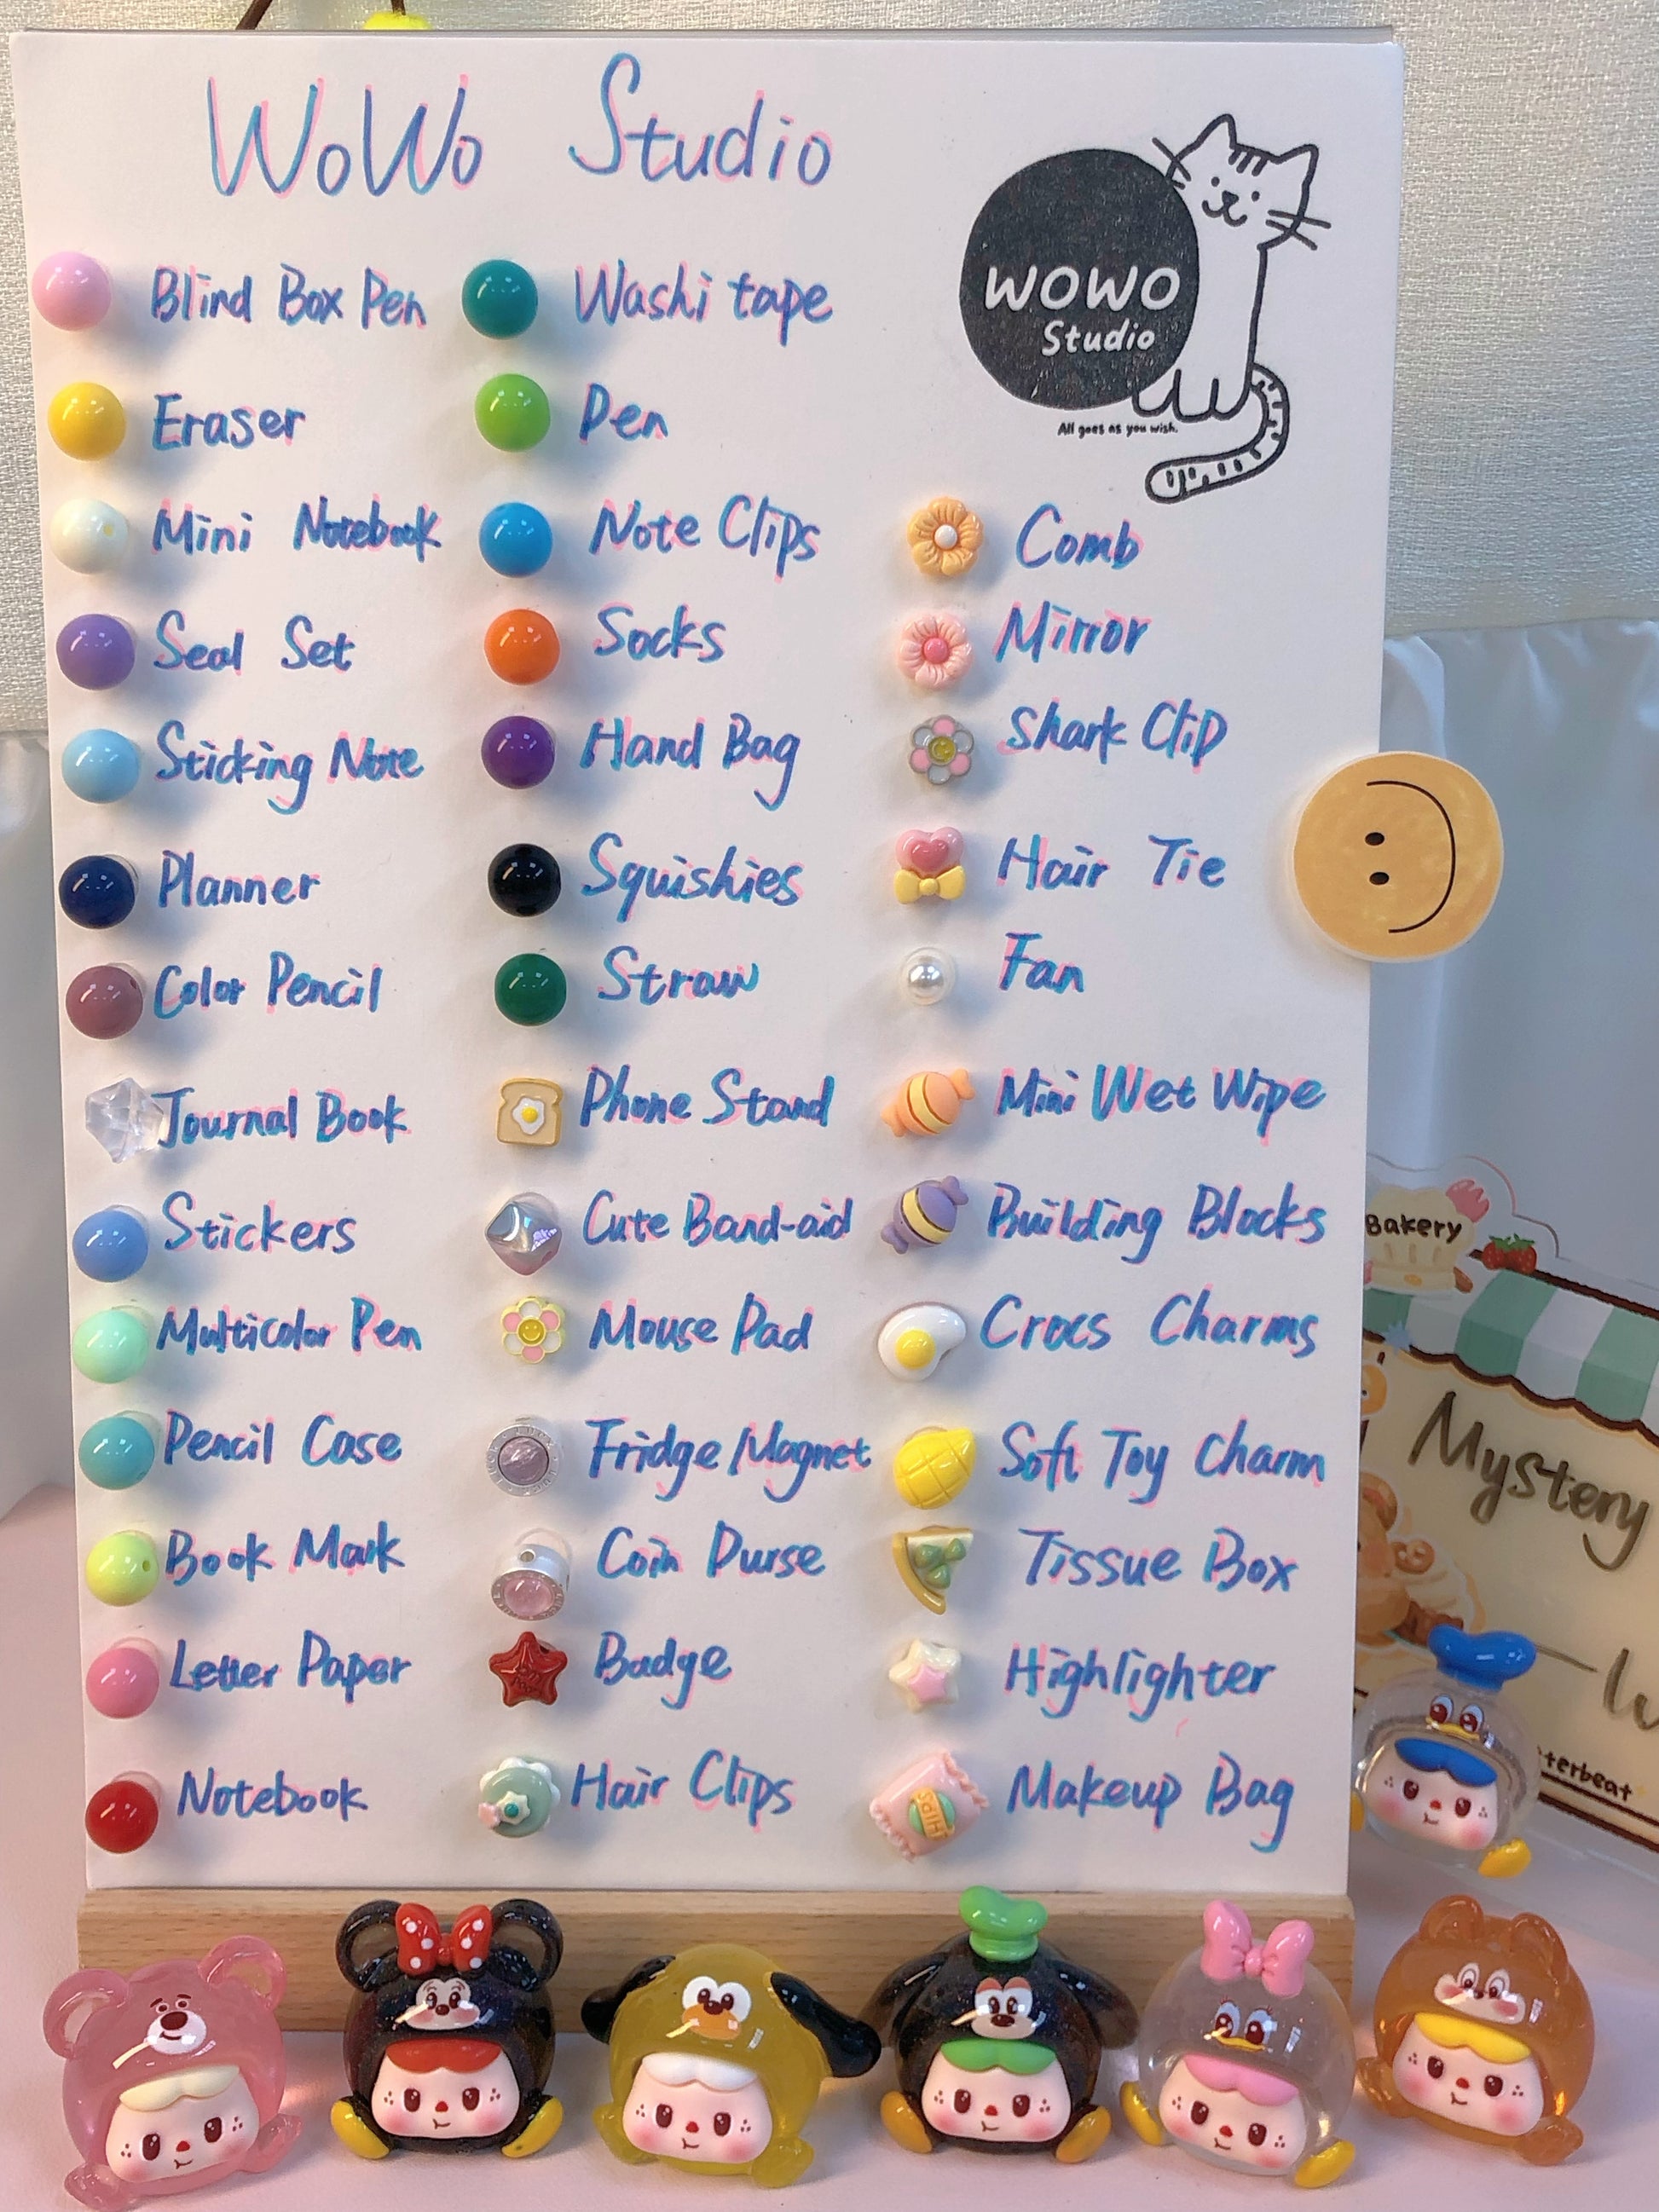 WoWo Studio
WOWO
Studio
All goes as you wish.
Blind Box Pen
Eraser
Mini Notebook
Seal Set
Sticking Note
Planner
Color Pencil
Journal Book
Stickers
Multicolor Pen
Pencil Case
Book Mark
Letter Paper
Notebook
Washi tape
Pen
Note Clips
Socks
Hand Bag
Squishies
Straw
Phone Stand
Cute Band-aid
Mouse Pad
Fridge Magnet
Coin Purse
Badge
Hair Clips
Comb
Mirror
Shark Clip
Hair Tie
Fan
Mini Wet Wipe
Building Blocks
Crocs Charms
Soft Toy Charm
Tissue Box
Highlighter
Makeup Bag
Bakery
Mystery
terbeat